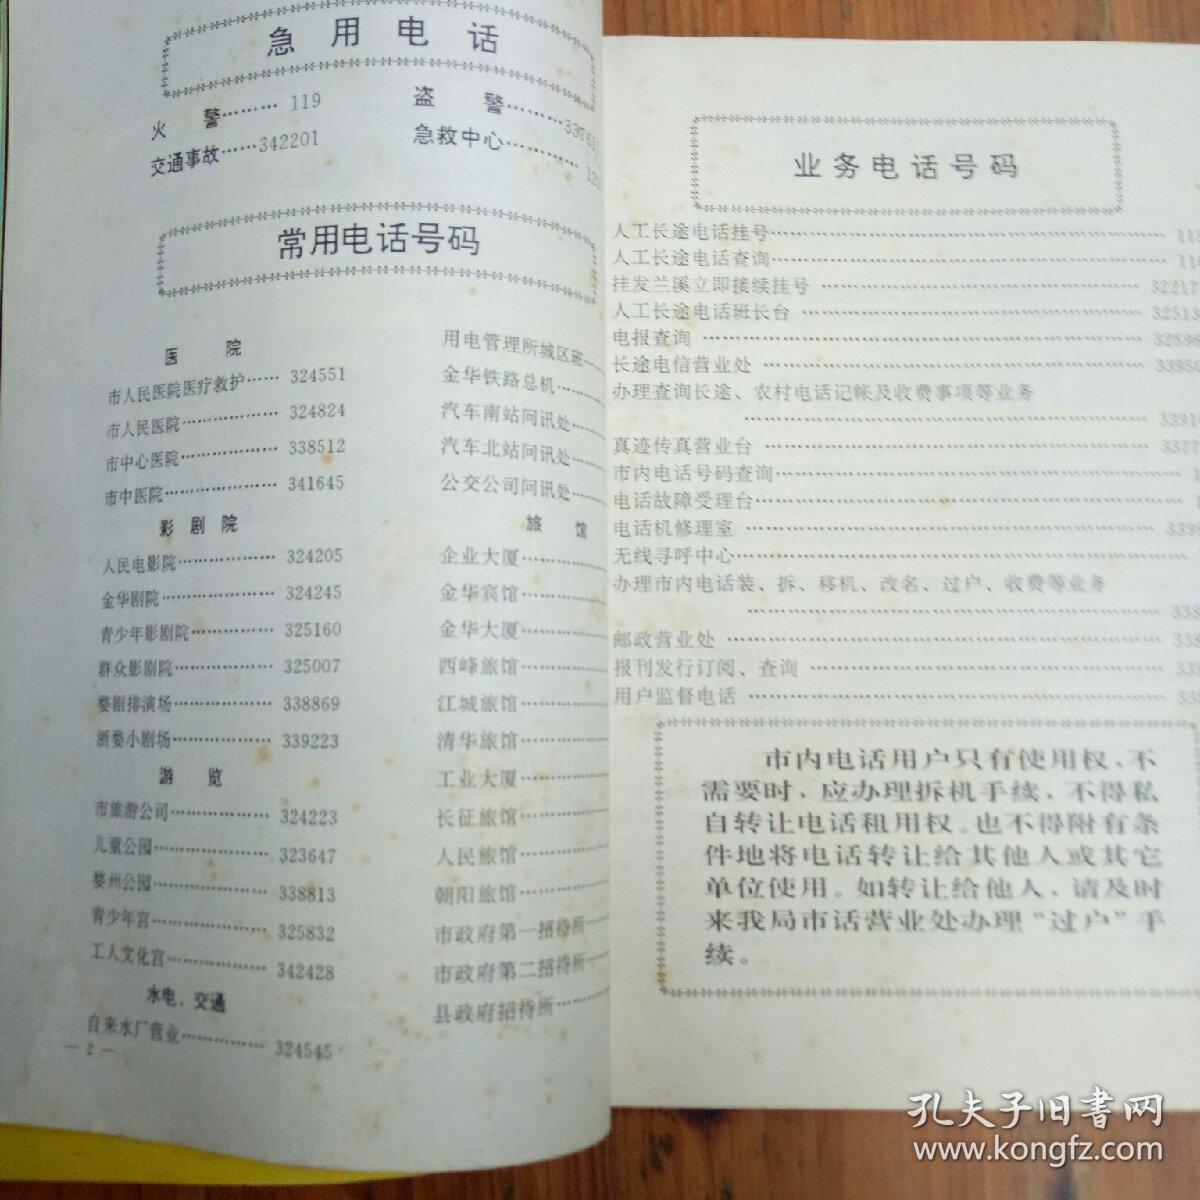 急用电话
火警……… 119
盗警………33761
交通事故……342201
急救中心…………12
常用电话号码
医院
市人民医院医疗救护…… 324551
市人民医院…………… 324824
市中心医院…………… 338512
市中医院……………… 341645
影剧院
人民电影院…………… 324205
金华剧院……………… 324245
青少年影剧院………… 325160
群众影剧院…………… 325007
婺剧排演场…………… 338869
浙婺小剧场…………… 339223
游览
市旅游公司…………… 324223
儿童公园……………… 323647
婺州公园……………… 338813
青少年宫……………… 325832
工人文化宫…………… 342428
水电、交通
自来水厂营业………… 324545
— 2 —
用电管理所城区班……
金华铁路总机………
汽车南站问讯处……
汽车北站问讯处……
公交公司问讯处……
旅馆
企业大厦…………
金华宾馆…………
金华大厦…………
西峰旅馆…………
江城旅馆…………
清华旅馆…………
工业大厦…………
长征旅馆…………
人民旅馆…………
朝阳旅馆…………
市政府第一招待所……
市政府第二招待所……
县政府招待所………
业务电话号码
人工长途电话挂号……………………………… 113
人工长途电话查询……………………………… 11
挂发兰溪立即接续挂号 ………………………… 32217
人工长途电话班长台 …………………………… 32513
电报查询 ………………………………………… 32596
长途电信营业处 ………………………………… 33950
办理查询长途、农村电话记帐及收费事项等业务
………………………………… 3391
真迹传真营业台 ………………………………… 3377
市内电话号码查询………………………………
电话故障受理台…………………………………
电话机修理室 …………………………………… 339
无线寻呼中心……………………………………
办理市内电话装、拆、移机、改名、过户、收费等业务
………………………………… 33
邮政营业处 ……………………………………… 33
报刊发行订阅、查询 …………………………… 33
用户监督电话 …………………………………… 33
市内电话用户只有使用权,不
需要时,应办理拆机手续,不得私
自转让电话租用权。也不得附有条
件地将电话转让给其他人或其它
单位使用。如转让给他人,请及时
来我局市话营业处办理“过户”手
续。
孔夫子旧书网
www.kongfz.com